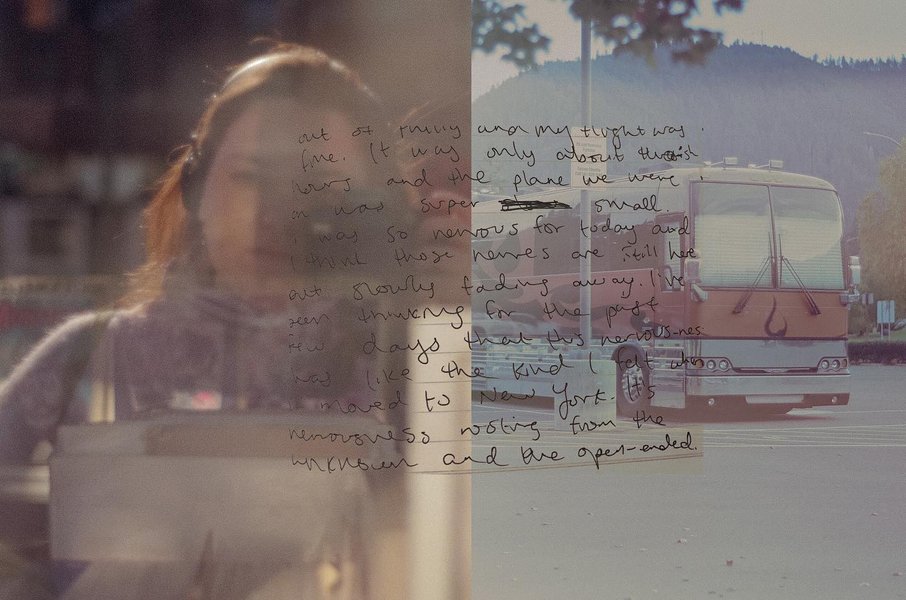 out of Philly and my flight was
fine. It was only about three-ish
hours and the plane we were
on was super small.
I was so nervous for today and
I think those nerves are still here
but slowly fading away. I've
been thinking for the past
few days that this nervous-nes
was like the kind I felt when
I moved to New York. It's
nervousness rooting from the
unknown and the open-ended.